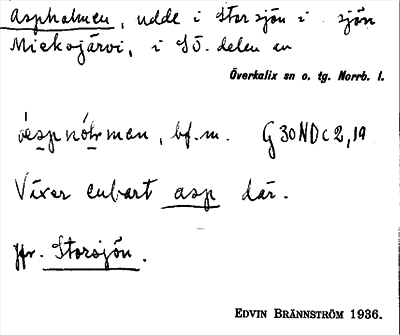 Aspholmen, udde i Storsjön i sjön
Mickojärvi, i SÖ. delen av
Överkalix sn o. tg. Norrb. l.
man, bf. m. G 30 ND c 2, 19
Växer enbart asp där.
Jfr. Storsjön.
EDVIN BRÄNNSTRÖM 1936.